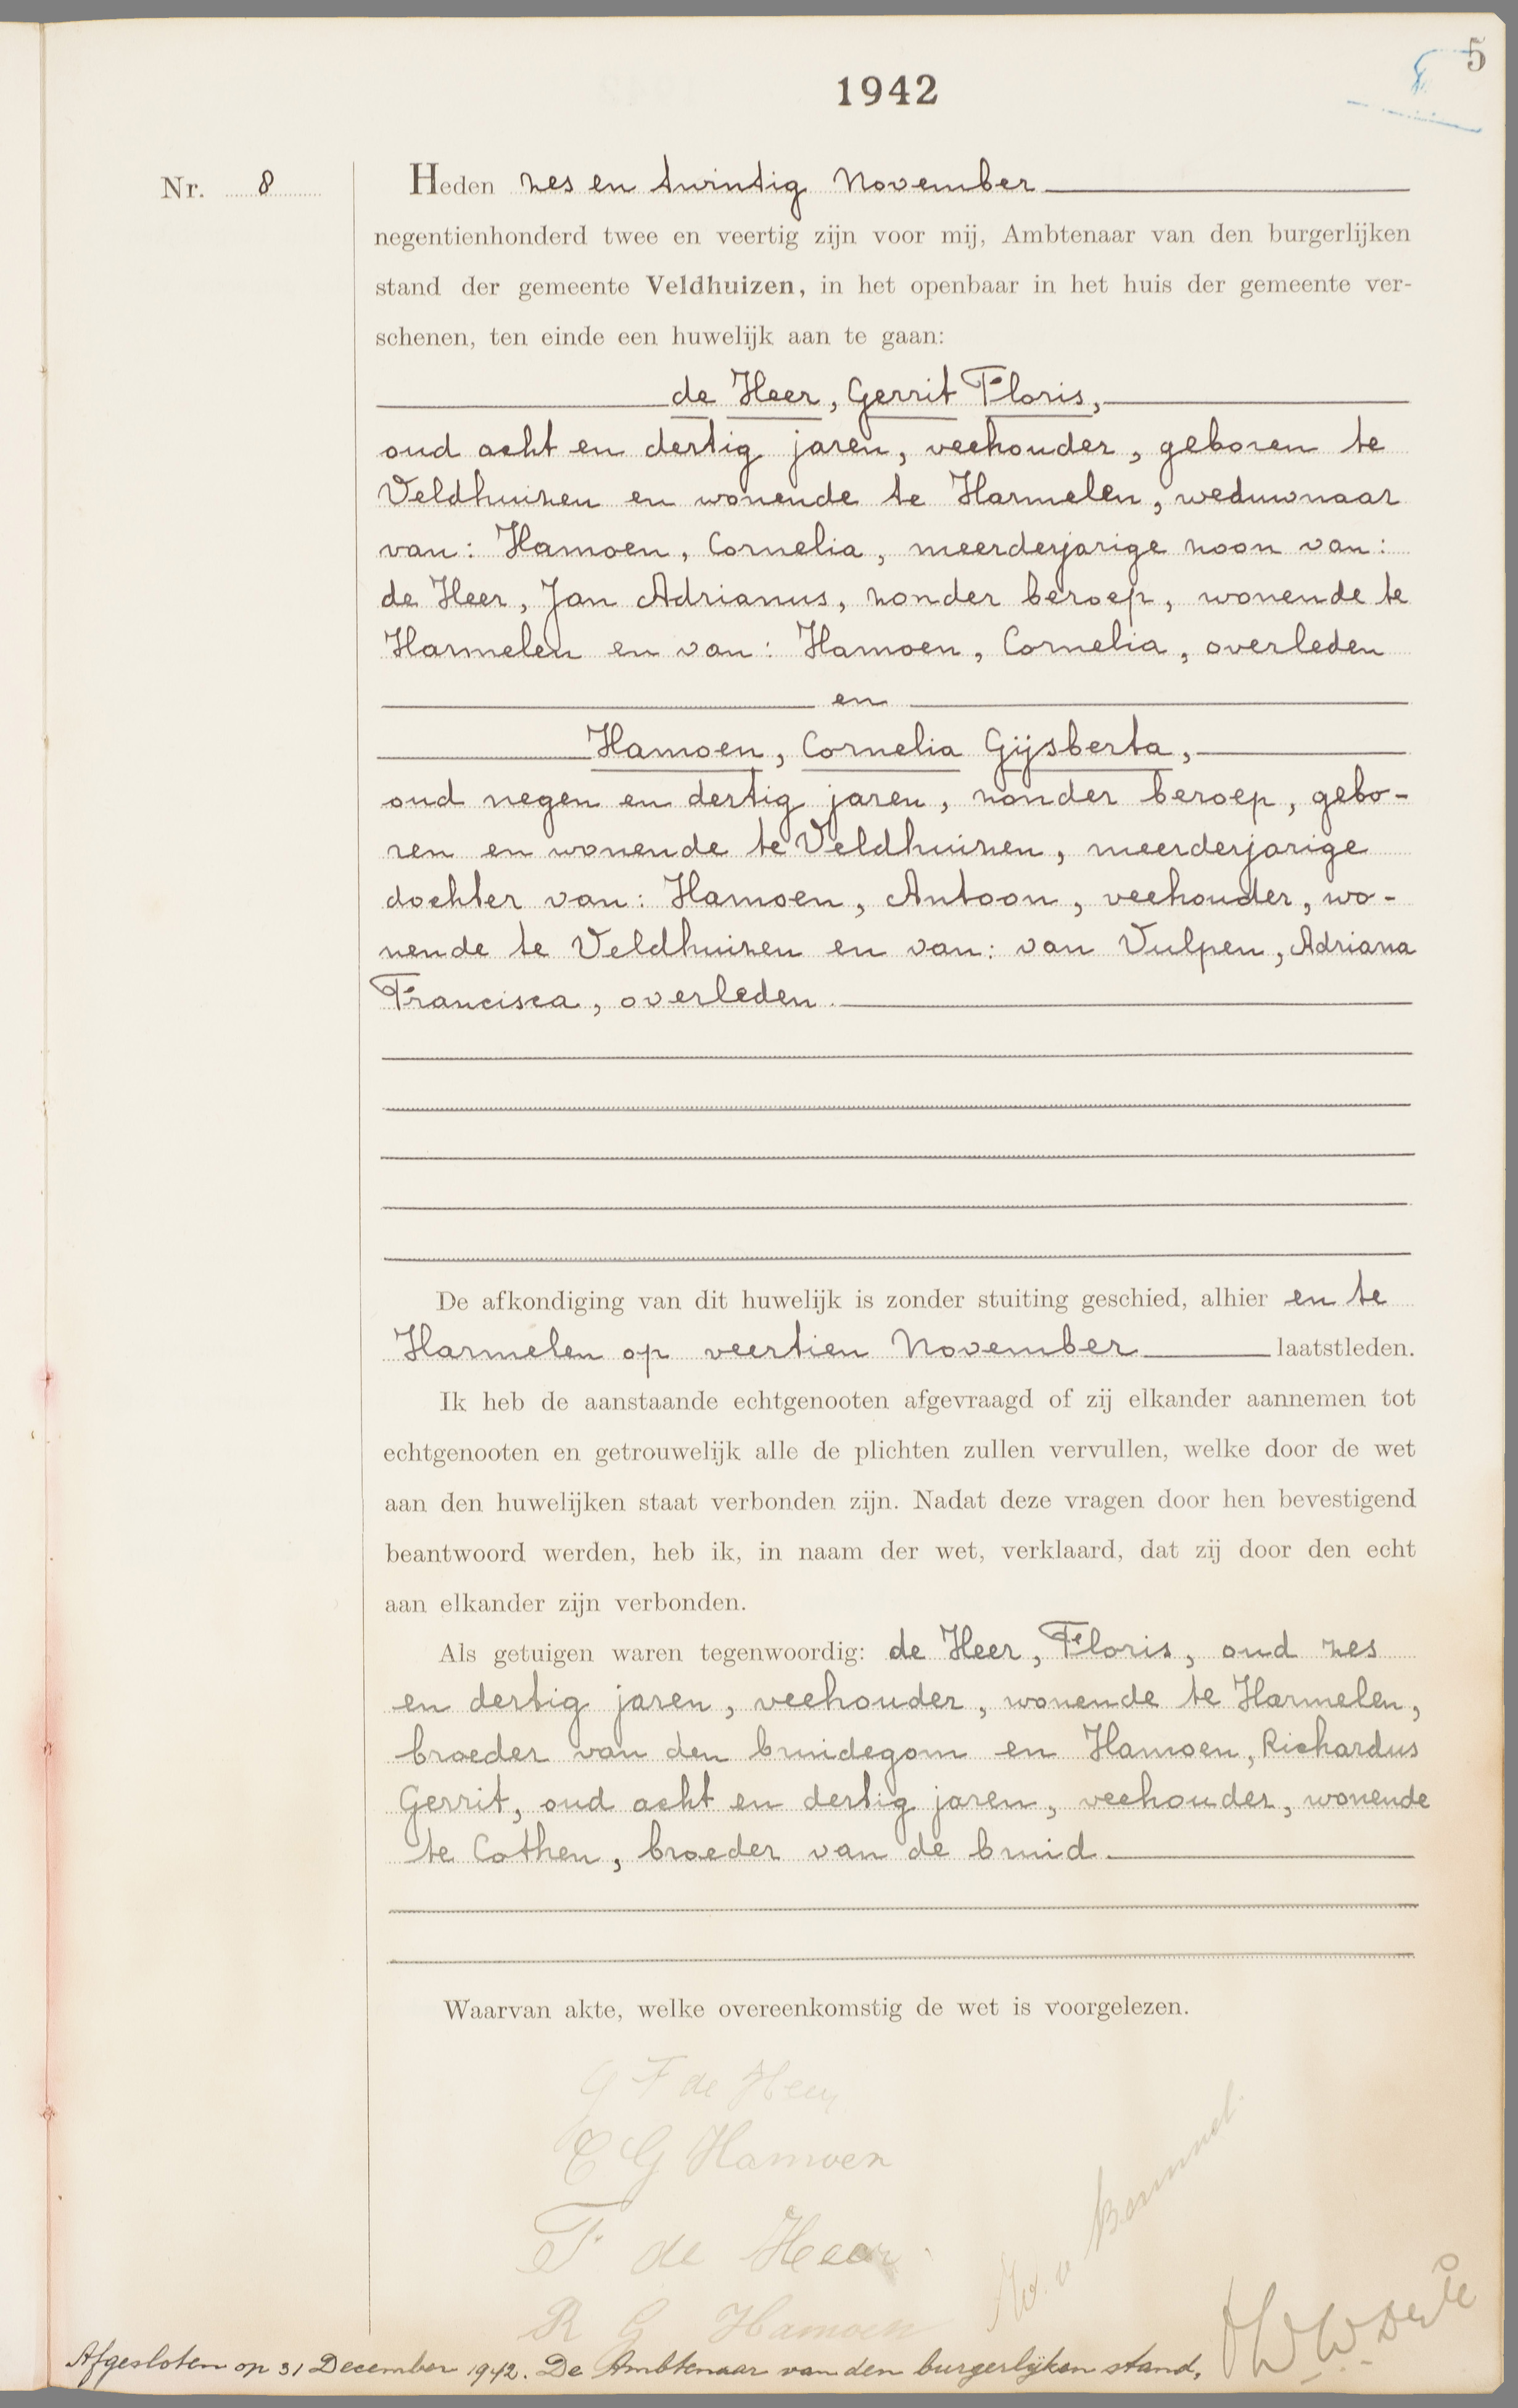 5
1942
Nr. 8
Heden zes en twintig November
negentienhonderd twee en veertig zijn voor mij, Ambtenaar van den burgerlijken
stand der gemeente Veldhuizen, in het openbaar in het huis der gemeente ver-
schenen, ten einde een huwelijk aan te gaan:
de Heer, Gerrit Floris,
oud acht en dertig jaren, veehouder, geboren te
Veldhuizen en wonende te Harmelen, weduwnaar
van: Hamoen, Cornelia, meerderjarige zoon van:
de Heer, Jan Adrianus, zonder beroep, wonende te
Harmelen en van: Hamoen, Cornelia, overleden
en
Hamoen, Cornelia Gijsberta,
oud negen en dertig jaren, zonder beroep, gebo-
ren en wonende te Veldhuizen, meerderjarige
dochter van: Hamoen, Antoon, veehouder, wo-
nende te Veldhuizen en van: van Vulpen, Adriana
Francisca, overleden.
De afkondiging van dit huwelijk is zonder stuiting geschied, alhier en te
Harmelen op veertien November laatstleden.
Ik heb de aanstaande echtgenooten afgevraagd of zij elkander aannemen tot
echtgenooten en getrouwelijk alle de plichten zullen vervullen, welke door de wet
aan den huwelijken staat verbonden zijn. Nadat deze vragen door hen bevestigend
beantwoord werden, heb ik, in naam der wet, verklaard, dat zij door den echt
aan elkander zijn verbonden.
Als getuigen waren tegenwoordig: de Heer, Floris, oud zes
en dertig jaren, veehouder, wonende te Harmelen,
broeder van den bruidegom en Hamoen, Richardus
Gerrit, oud acht en dertig jaren, veehouder, wonende
te Cothen, broeder van de bruid.
Waarvan akte, welke overeenkomstig de wet is voorgelezen.
G F de Heer
C G Hamoen
F de Heer
R G Hamoen
Afgesloten op 31 December 1942. De Ambtenaar van den burgerlijken stand,